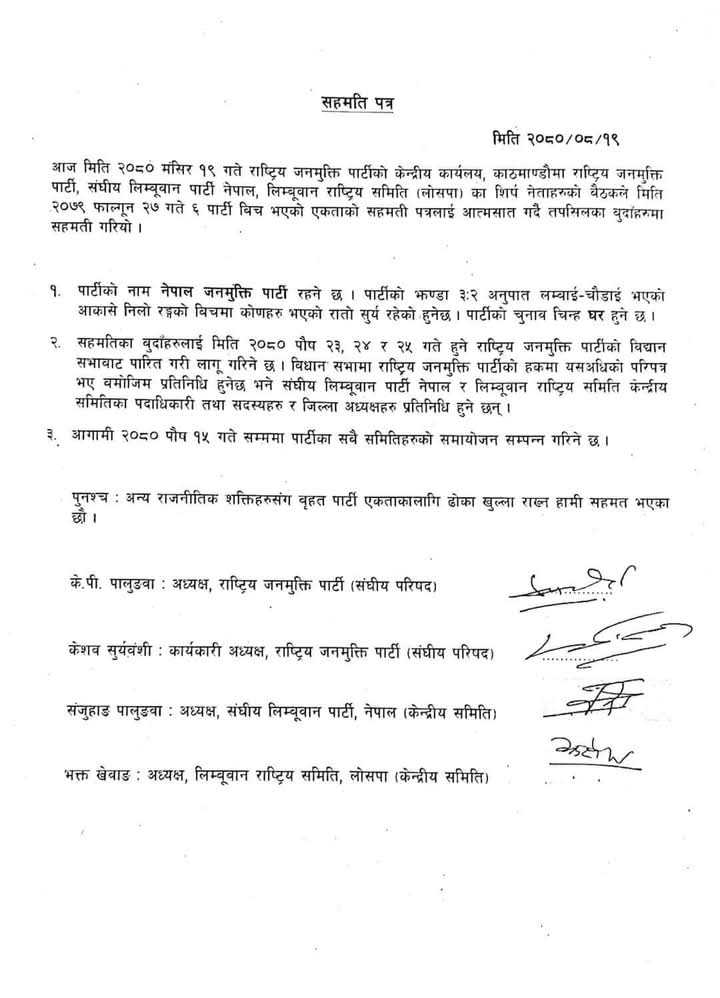 सहमति पत्र
मिति २०८०/०८/१९
आज मिति २०८० मंसिर १९ गते राष्ट्रिय जनमुक्ति पार्टीको केन्द्रीय कार्यलय, काठमाण्डौमा राष्ट्रिय जनमुक्ति
पार्टी, संघीय लिम्बूवान पार्टी नेपाल, लिम्बूवान राष्ट्रिय समिति (लोसपा) का शिर्ष नेताहरुको बैठकले मिति
२०७९ फाल्गून २७ गते ६ पार्टी बिच भएको एकताको सहमती पत्रलाई आत्मसात गर्दै तपसिलका बुदाँहरुमा
सहमती गरियो ।
१. पार्टीको नाम नेपाल जनमुक्ति पार्टी रहने छ । पार्टीको झण्डा ३:२ अनुपात लम्बाई-चौडाई भएको
आकासे निलो रङ्गको बिचमा कोणहरु भएको रातो सुर्य रहेको हुनेछ । पार्टीको चुनाव चिन्ह घर हुने छ ।
२. सहमतिका बुदाँहरुलाई मिति २०८० पौष २३, २४ र २५ गते हुने राष्ट्रिय जनमुक्ति पार्टीको विधान
सभाबाट पारित गरी लागू गरिने छ । विधान सभामा राष्ट्रिय जनमुक्ति पार्टीको हकमा यसअघिको परिपत्र
भए बमोजिम प्रतिनिधि हुनेछ भने संघीय लिम्बूवान पार्टी नेपाल र लिम्बूवान राष्ट्रिय समिति केन्द्रीय
समितिका पदाधिकारी तथा सदस्यहरु र जिल्ला अध्यक्षहरु प्रतिनिधि हुने छन् ।
३. आगामी २०८० पौष १५ गते सम्ममा पार्टीका सबै समितिहरुको समायोजन सम्पन्न गरिने छ ।
पुनश्च : अन्य राजनीतिक शक्तिहरुसंग वृहत पार्टी एकताकालागि ढोका खुल्ला राख्न हामी सहमत भएका
छौं ।
के.पी. पालुङवा : अध्यक्ष, राष्ट्रिय जनमुक्ति पार्टी (संघीय परिषद)
केशव सुर्यवंशी : कार्यकारी अध्यक्ष, राष्ट्रिय जनमुक्ति पार्टी (संघीय परिषद)
संजुहाङ पालुङवा : अध्यक्ष, संघीय लिम्बूवान पार्टी, नेपाल (केन्द्रीय समिति)
भक्त खेवाङ : अध्यक्ष, लिम्बूवान राष्ट्रिय समिति, लोसपा (केन्द्रीय समिति)